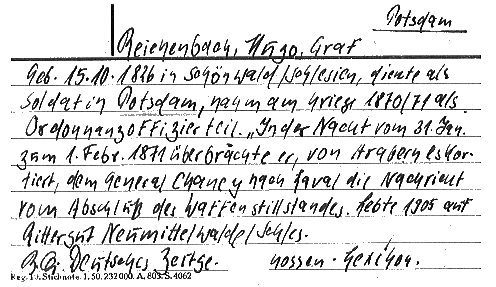 Potsdam
Reichenbach, Hugo, Graf
Geb. 15.10.1826 in Schönwald/Schlesien, diente als
Soldat in Potsdam, nahm am Kriege 1870/71 als
Ordonnanzoffizier teil. „In der Nacht vom 31. Jan.
zum 1. Febr. 1871 überbrachte er, von Arabern eskor-
tiert, dem General Chancy nach Laval die Nachricht
vom Abschluß des Waffenstillstandes. Lebte 1905 auf
Rittergut Neumittelwalde/Schles.
Deutsches Zeitge. nossen-Lexikon.
Reg. 13. Stichnote. 1. 50. 232000. A. 803. S. 4062